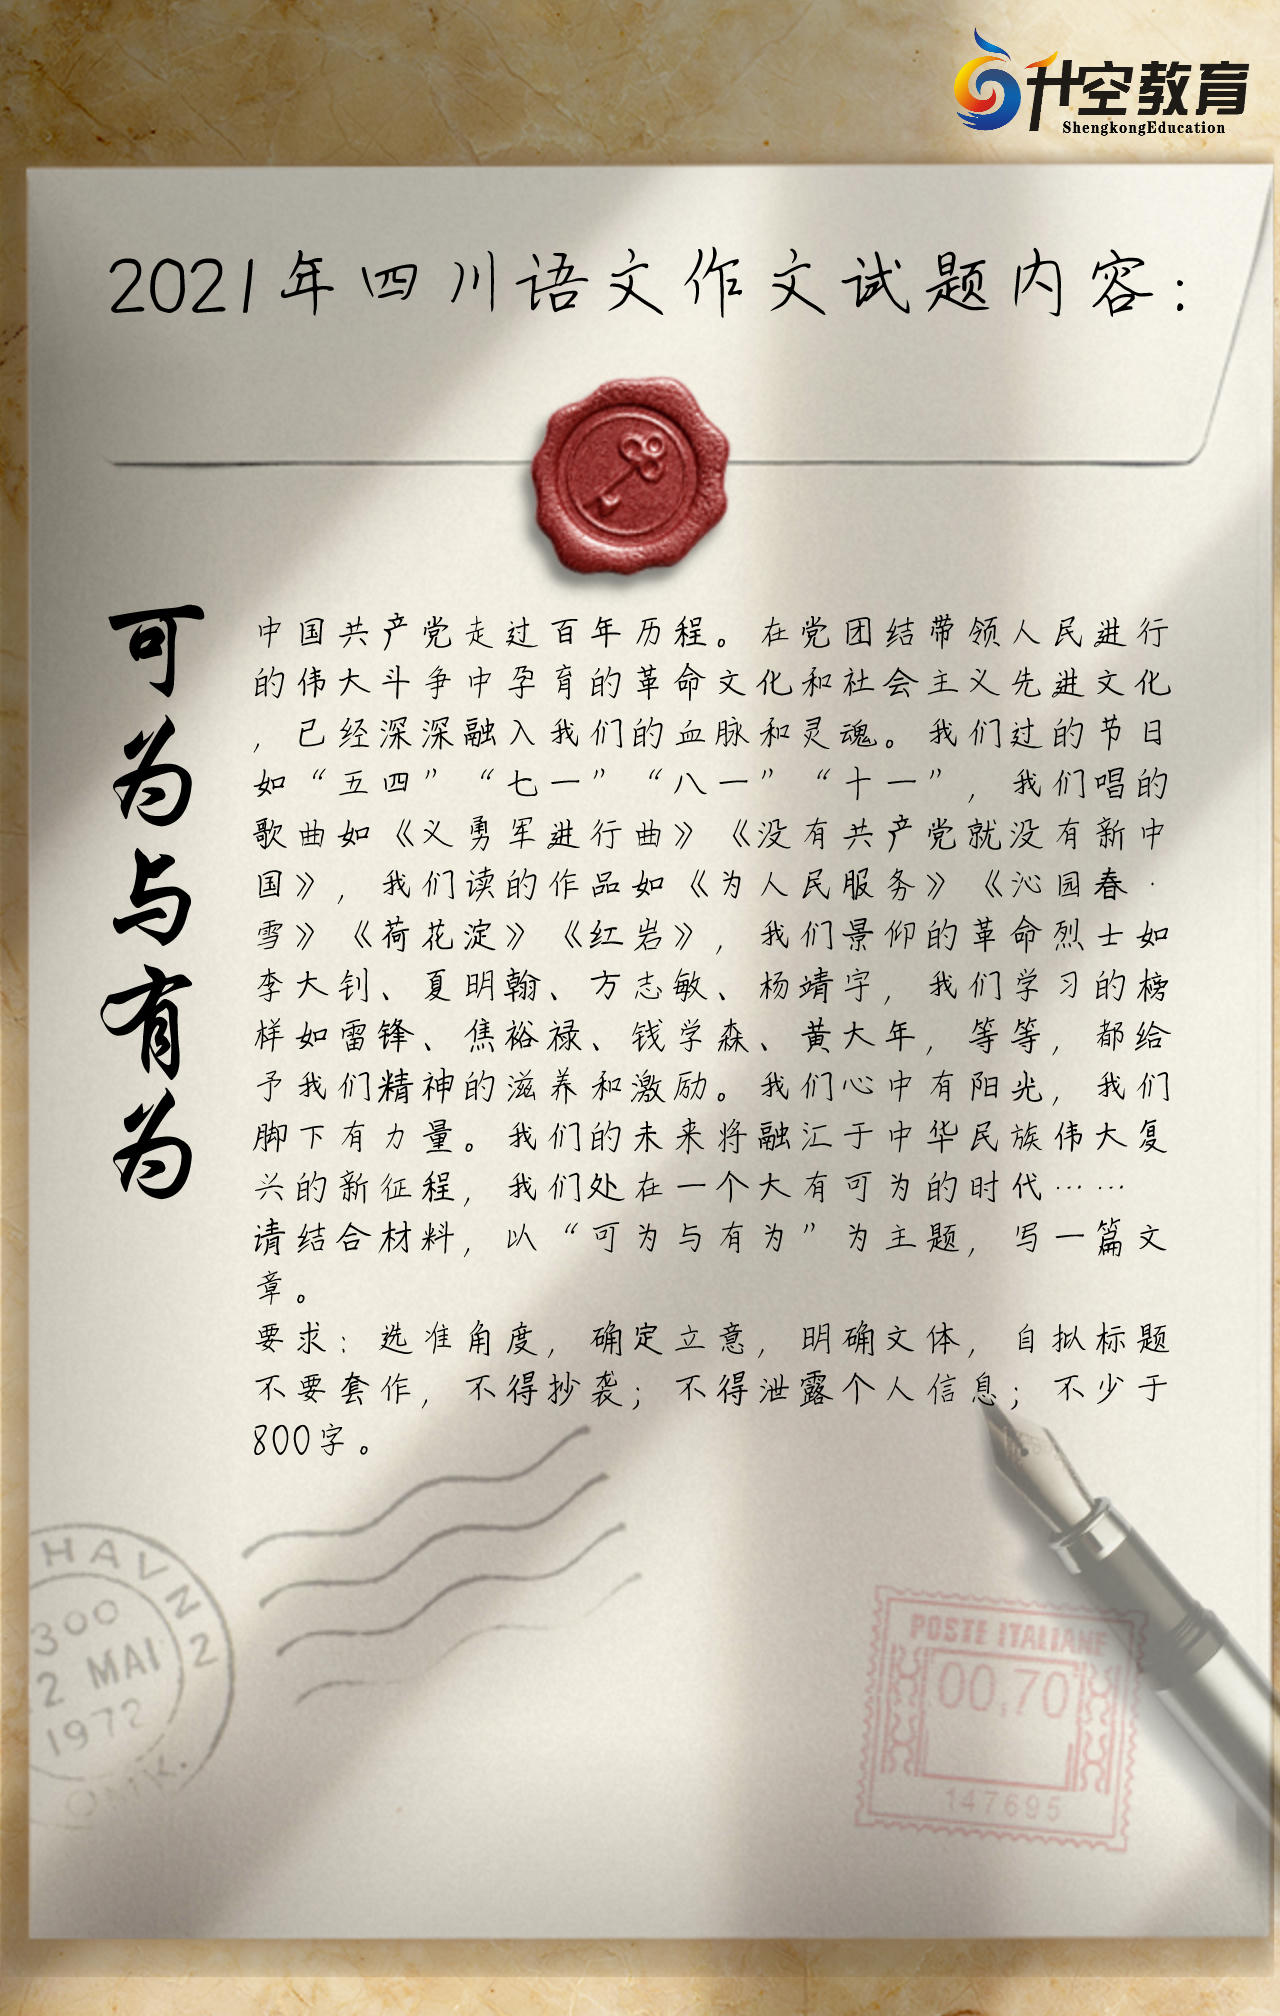 升空教育
ShengkongEducation
2021年四川语文作文试题内容：
可为与有为
中国共产党走过百年历程。在党团结带领人民进行
的伟大斗争中孕育的革命文化和社会主义先进文化
，已经深深融入我们的血脉和灵魂。我们过的节日
如“五四”“七一”“八一”“十一”，我们唱的
歌曲如《义勇军进行曲》《没有共产党就没有新中
国》，我们读的作品如《为人民服务》《沁园春·
雪》《荷花淀》《红岩》，我们景仰的革命烈士如
李大钊、夏明翰、方志敏、杨靖宇，我们学习的榜
样如雷锋、焦裕禄、钱学森、黄大年，等等，都给
予我们精神的滋养和激励。我们心中有阳光，我们
脚下有力量。我们的未来将融汇于中华民族伟大复
兴的新征程，我们处在一个大有可为的时代……
请结合材料，以“可为与有为”为主题，写一篇文
章。
要求：选准角度，确定立意，明确文体，自拟标题
不要套作，不得抄袭；不得泄露个人信息；不少于
800字。
HAVN2
300
2 MAI
1972
OMK.
POSTE ITALIANE
00,70
147695